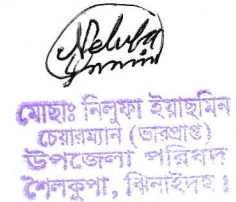 Nelufa
Yasmin
মোছাঃ নিলুফা ইয়াছমিন
চেয়ারম্যান (ভারপ্রাপ্ত)
উপজেলা পরিষদ
শৈলকুপা, ঝিনাইদহ।